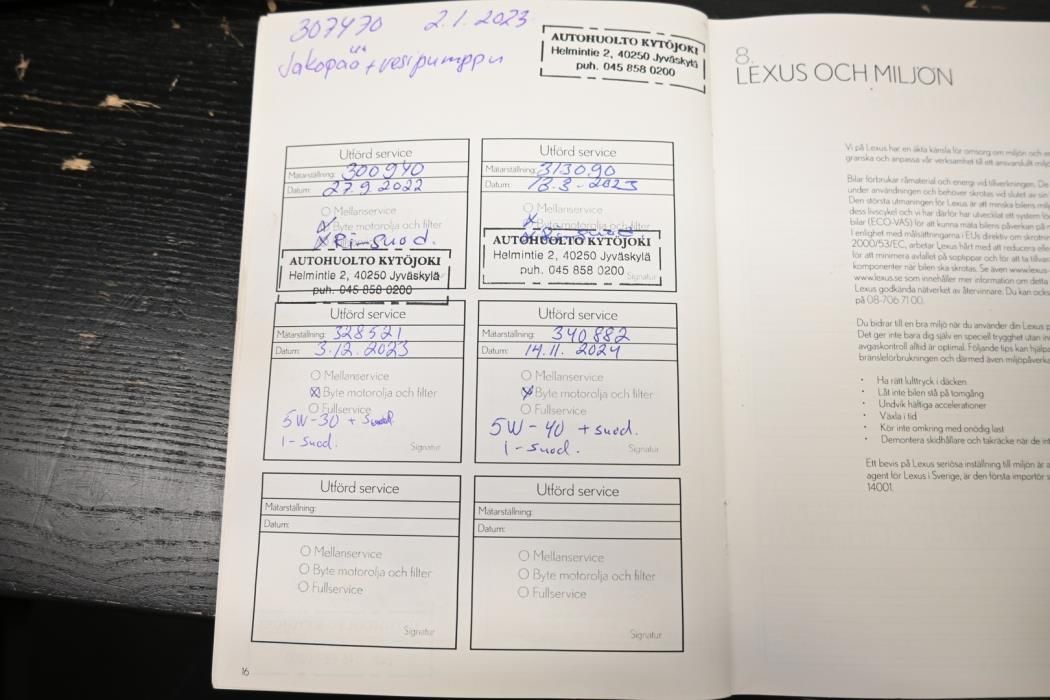 307470 2.1.2023
Jakopää + vesipumppu
AUTOHUOLTO KYTÖJOKI
Helmintie 2, 40250 Jyväskylä
puh. 045 858 0200
Utförd service
Mätarställning: 300940
Datum: 27.9 2022
Mellanservice
Byte motorolja och filter
AUTOHUOLTO KYTÖJOKI
Helmintie 2, 40250 Jyväskylä
puh. 045 858 0200
Utförd service
Mätarställning: 313090
Datum: 13.3-2023
Mellanservice
Byte motorolja och filter
AUTOHUOLTO KYTÖJOKI
Helmintie 2, 40250 Jyväskylä
puh. 045 858 0200
Signatur
Utförd service
Mätarställning: 328521
Datum: 3.12.2023
Mellanservice
Byte motorolja och filter
Fullservice
5W-30 + suod.
1-suod.
Signatur
Utförd service
Mätarställning: 340882
Datum: 14.11.2024
Mellanservice
Byte motorolja och filter
Fullservice
5W-40 + suod.
1-suod.
Signatur
Utförd service
Mätarställning:
Datum:
Mellanservice
Byte motorolja och filter
Fullservice
Signatur
Utförd service
Mätarställning:
Datum:
Mellanservice
Byte motorolja och filter
Fullservice
Signatur
16
8.
LEXUS OCH MILJÖN
Vi på Lexus har en äkta känsla för omsorg om miljön och
granska och anpassa vår verksamhet till ett ansvarsfullt
Bilar förbrukar råmaterial och energi vid tillverkningen. De
under användningen och behöver skrotas vid slutet av sin
Den största utmaningen för Lexus är att minska bilens
dess livscykel och vi har därför har utvecklat ett system för
bilar (ECO-VAS) för att kunna mäta bilens påverkan på
I enlighet med målsättningarna i EUs direktiv om
2000/53/EC, arbetar Lexus hårt med att reducera
för att minimera avfallet på soptippar och för att ta tillvara
komponenter när bilen ska skrotas. Se även
www.lexus.se som innehåller mer information om detta
Lexus godkända nätverket av återvinnare. Du kan
på 08-706 71 00.
Du bidrar till en bra miljö när du använder din Lexus
Det ger inte bara dig själv en speciell trygghet utan
avgaskontroll alltid är optimal. Följande tips kan
bränsleförbrukningen och därmed även
• Ha rätt lufttryck i däcken
• Låt inte bilen stå på tomgång
• Undvik häftiga accelerationer
• Växla i tid
• Kör inte omkring med onödig last
• Demontera skidhållare och takräcke när de
Ett bevis på Lexus seriösa inställning till miljön är
agent för Lexus i Sverige, är den första importör
14001.